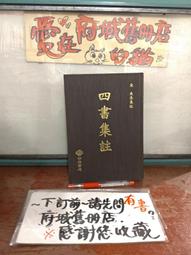 愛在 府城舊冊店
的貓
宋 朱熹集註
四書集註
～下訂前～請先問 有書?
府城舊冊店
※感謝您 收藏